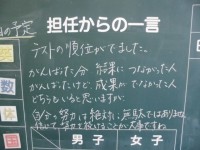 の予定
担任からの一言
テストの順位がでました。
がんばった分 結果につながった人
がんばったけど、成果がでなかった人
どちらもいると思いますが、
自分の努力は絶対に無駄ではありません。
続けて努力を続けることが大事ですね
数
体
男子 女子